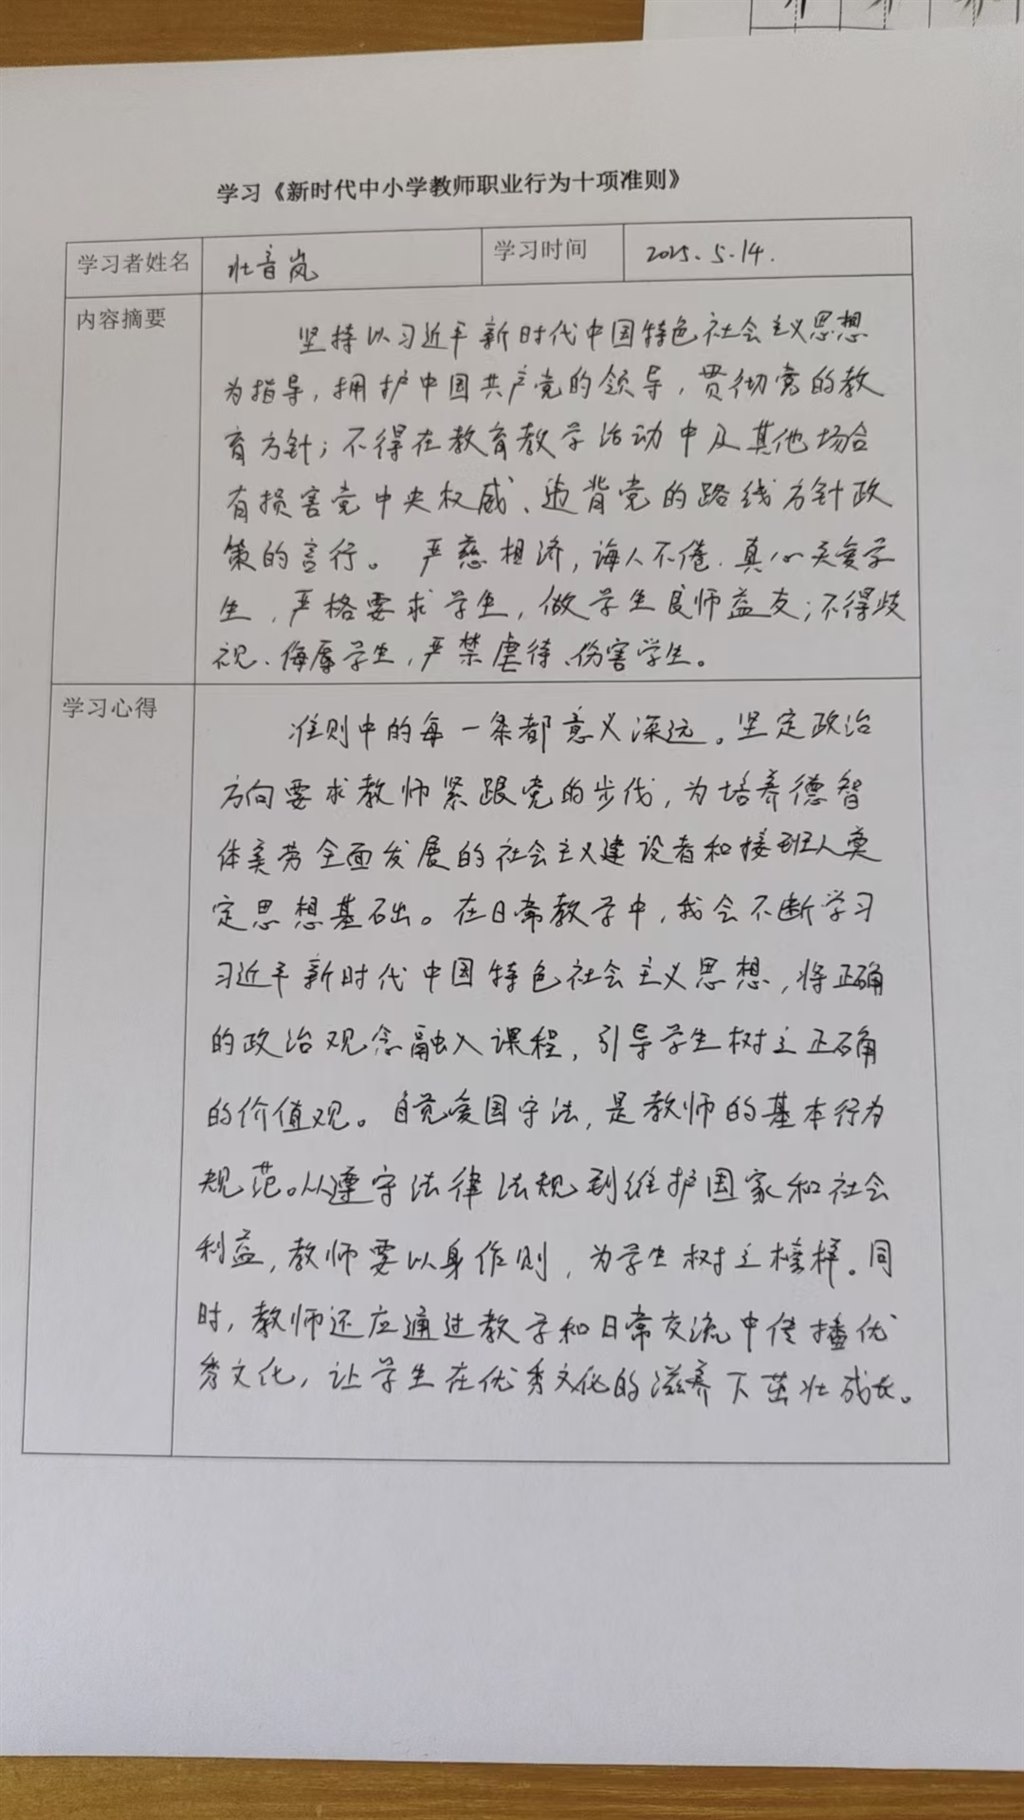 学习《新时代中小学教师职业行为十项准则》
学习者姓名 壮音岚 学习时间 2025.5.14.
内容摘要
坚持以习近平新时代中国特色社会主义思想
为指导，拥护中国共产党的领导，贯彻党的教
育方针；不得在教育教学活动中及其他场合
有损害党中央权威、违背党的路线方针政
策的言行。严慈相济，诲人不倦.真心关爱学
生，严格要求学生，做学生良师益友；不得歧
视、侮辱学生，严禁虐待、伤害学生。
学习心得
准则中的每一条都意义深远。坚定政治
方向要求教师紧跟党的步伐，为培养德智
体美劳全面发展的社会主义建设者和接班人奠
定思想基础。在日常教学中，我会不断学习
习近平新时代中国特色社会主义思想，将正确
的政治观念融入课程，引导学生树立正确
的价值观。自觉爱国守法，是教师的基本行为
规范。从遵守法律法规到维护国家和社会
利益，教师要以身作则，为学生树立榜样。同
时，教师还应通过教学和日常交流中传播优
秀文化，让学生在优秀文化的滋养下茁壮成长。